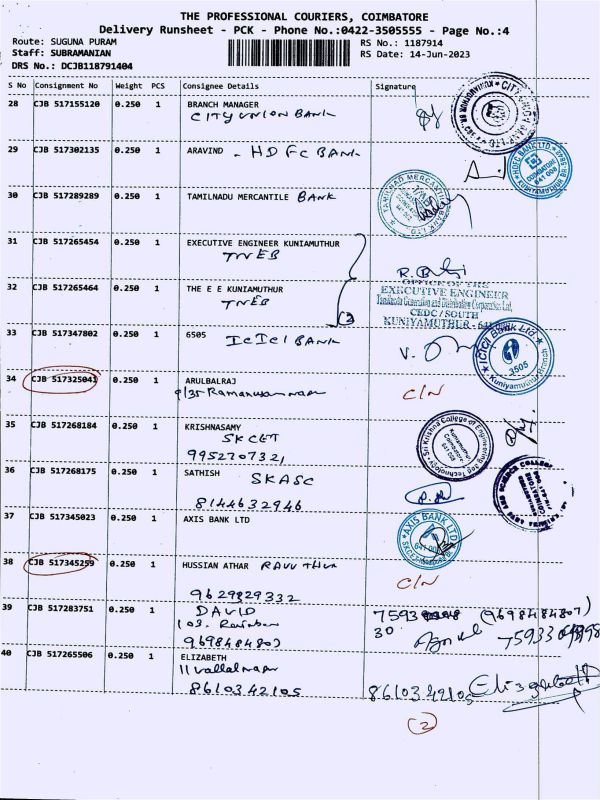 THE PROFESSIONAL COURIERS, COIMBATORE
Delivery Runsheet - PCK - Phone No.:0422-3505555 - Page No.:4
Route: SUGUNA PURAM
RS No.: 1187914
Staff: SUBRAMANIAN
RS Date: 14-Jun-2023
DRS No.: DCJB118791404
S No Consignment No Weight PCS Consignee Details Signature
28 CJB 517155120 0.250 1 BRANCH MANAGER
CITY UNION BANK
29 CJB 517302135 0.250 1 ARAVIND - HDFC BANK
HDFC BANK LTD.
COIMBATORE
641 008
30 CJB 517289289 0.250 1 TAMILNADU MERCANTILE BANK
TAMILNAD MERCANTILE BANK LTD
31 CJB 517265454 0.250 1 EXECUTIVE ENGINEER KUNIAMUTHUR
TNEB
32 CJB 517265464 0.250 1 THE E E KUNIAMUTHUR
TNEB
(2)
OFFICE OF THE
EXECUTIVE ENGINEER
Tamilnadu Generation and Distribution Corporation Ltd,
CEDC / SOUTH
KUNIYAMUTHUR - 641
33 CJB 517347802 0.250 1 6505
ICICI BANK
ICICI Bank Ltd.
Kuniyamuthur Branch
34 CJB 517325041 0.250 1 ARULBALRAJ C/N
35 CJB 517268184 0.250 1 KRISHNASAMY
SKCET
9952707321
Sri Krishna College of Engineering and Technology
36 CJB 517268175 0.250 1 SATHISH SKASC
8144632946
37 CJB 517345023 0.250 1 AXIS BANK LTD
AXIS BANK LTD
38 CJB 517345259 0.250 1 HUSSIAN ATHAR RAVUTHUR C/N
9629829332
39 CJB 517283751 0.250 1 DAVID
103. Rainbow
9698484807
7593 (9698484807)
30
40 CJB 517265506 0.250 1 ELIZABETH
11 Vallalnagar
8610342105
8610342105 Elizabeth
(2)